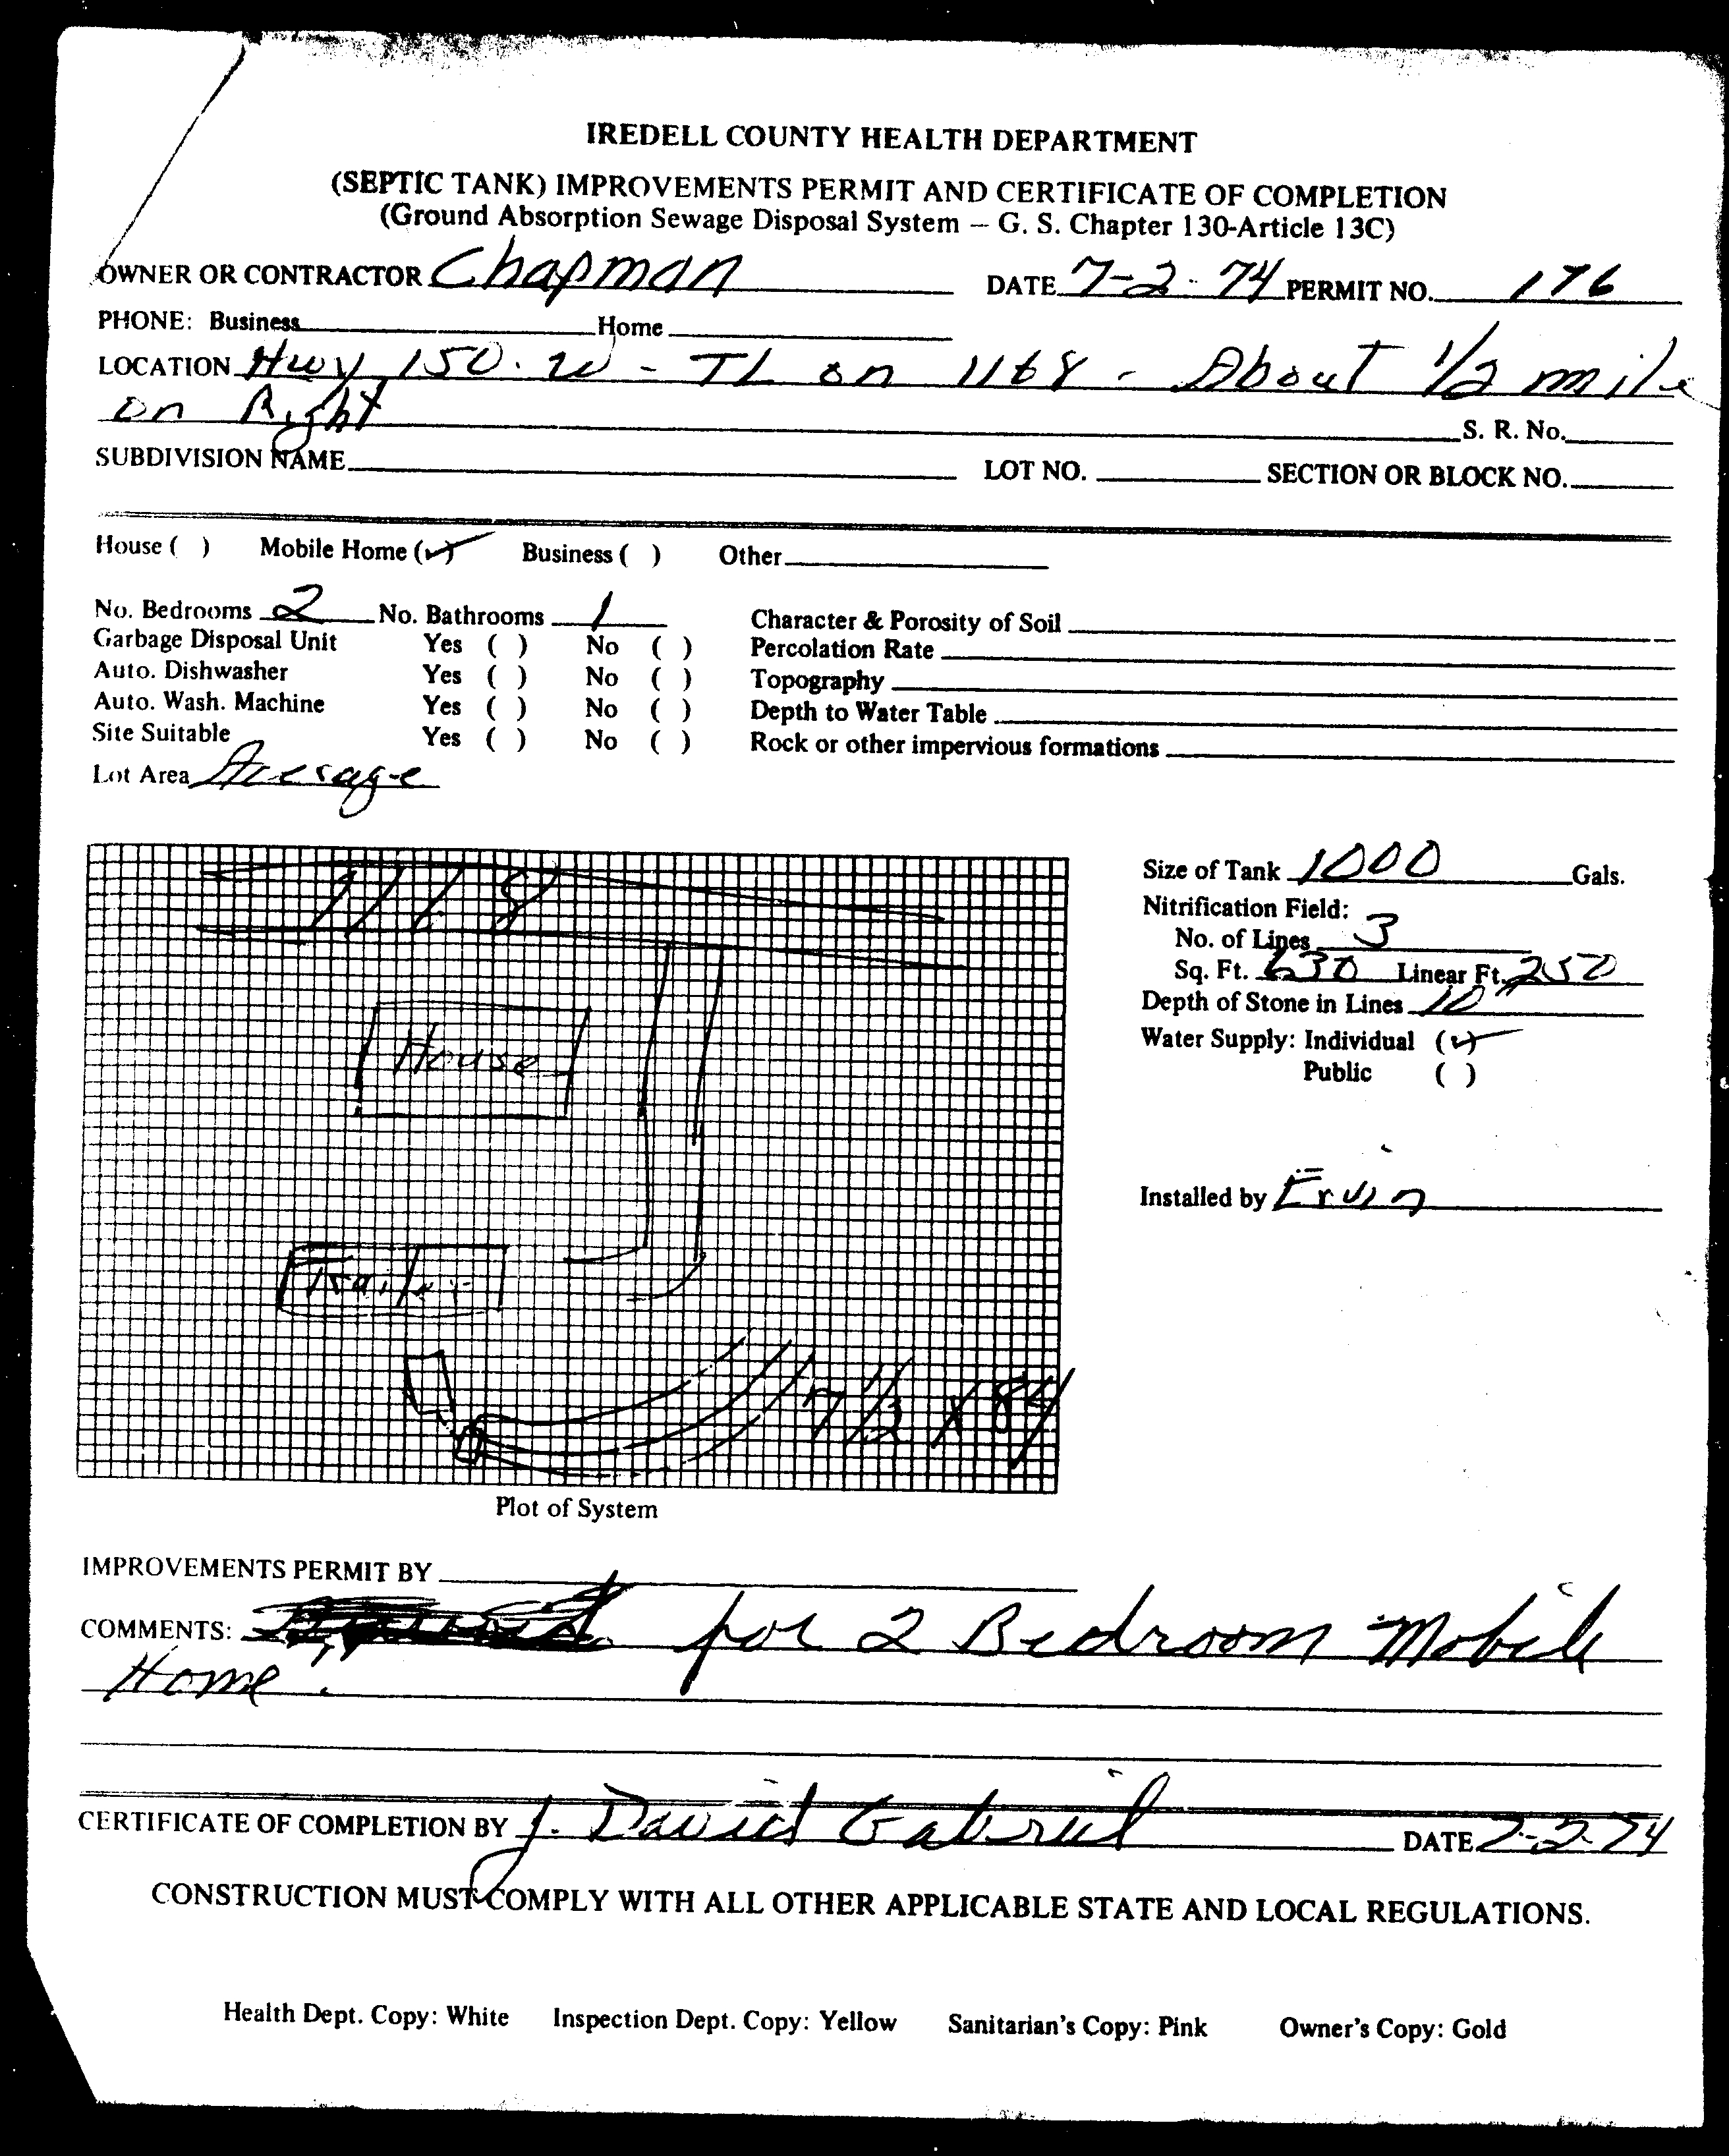 IREDELL COUNTY HEALTH DEPARTMENT
(SEPTIC TANK) IMPROVEMENTS PERMIT AND CERTIFICATE OF COMPLETION
(Ground Absorption Sewage Disposal System – G. S. Chapter 130-Article 13C)
OWNER OR CONTRACTOR Chapman DATE 7-2-74 PERMIT NO. 176
PHONE: Business Home
LOCATION Hwy 150. W - TL on 1168 - About 1/2 mile
on Right S. R. No.
SUBDIVISION NAME LOT NO. SECTION OR BLOCK NO.
House ( ) Mobile Home (✓) Business ( ) Other
No. Bedrooms 2 No. Bathrooms 1 Character & Porosity of Soil
Garbage Disposal Unit Yes ( ) No ( ) Percolation Rate
Auto. Dishwasher Yes ( ) No ( ) Topography
Auto. Wash. Machine Yes ( ) No ( ) Depth to Water Table
Site Suitable Yes ( ) No ( ) Rock or other impervious formations
Lot Area
1168
House
Trailer
7 1/2 X 84
Plot of System
Size of Tank 1000 Gals.
Nitrification Field:
No. of Lines 3
Sq. Ft. 630 Linear Ft. 250
Depth of Stone in Lines 10"
Water Supply: Individual (✓)
Public ( )
Installed by Ervin
IMPROVEMENTS PERMIT BY
COMMENTS: for 2 Bedroom Mobile
Home.
CERTIFICATE OF COMPLETION BY J. David Gabriel DATE 7-2-74
CONSTRUCTION MUST COMPLY WITH ALL OTHER APPLICABLE STATE AND LOCAL REGULATIONS.
Health Dept. Copy: White Inspection Dept. Copy: Yellow Sanitarian's Copy: Pink Owner's Copy: Gold